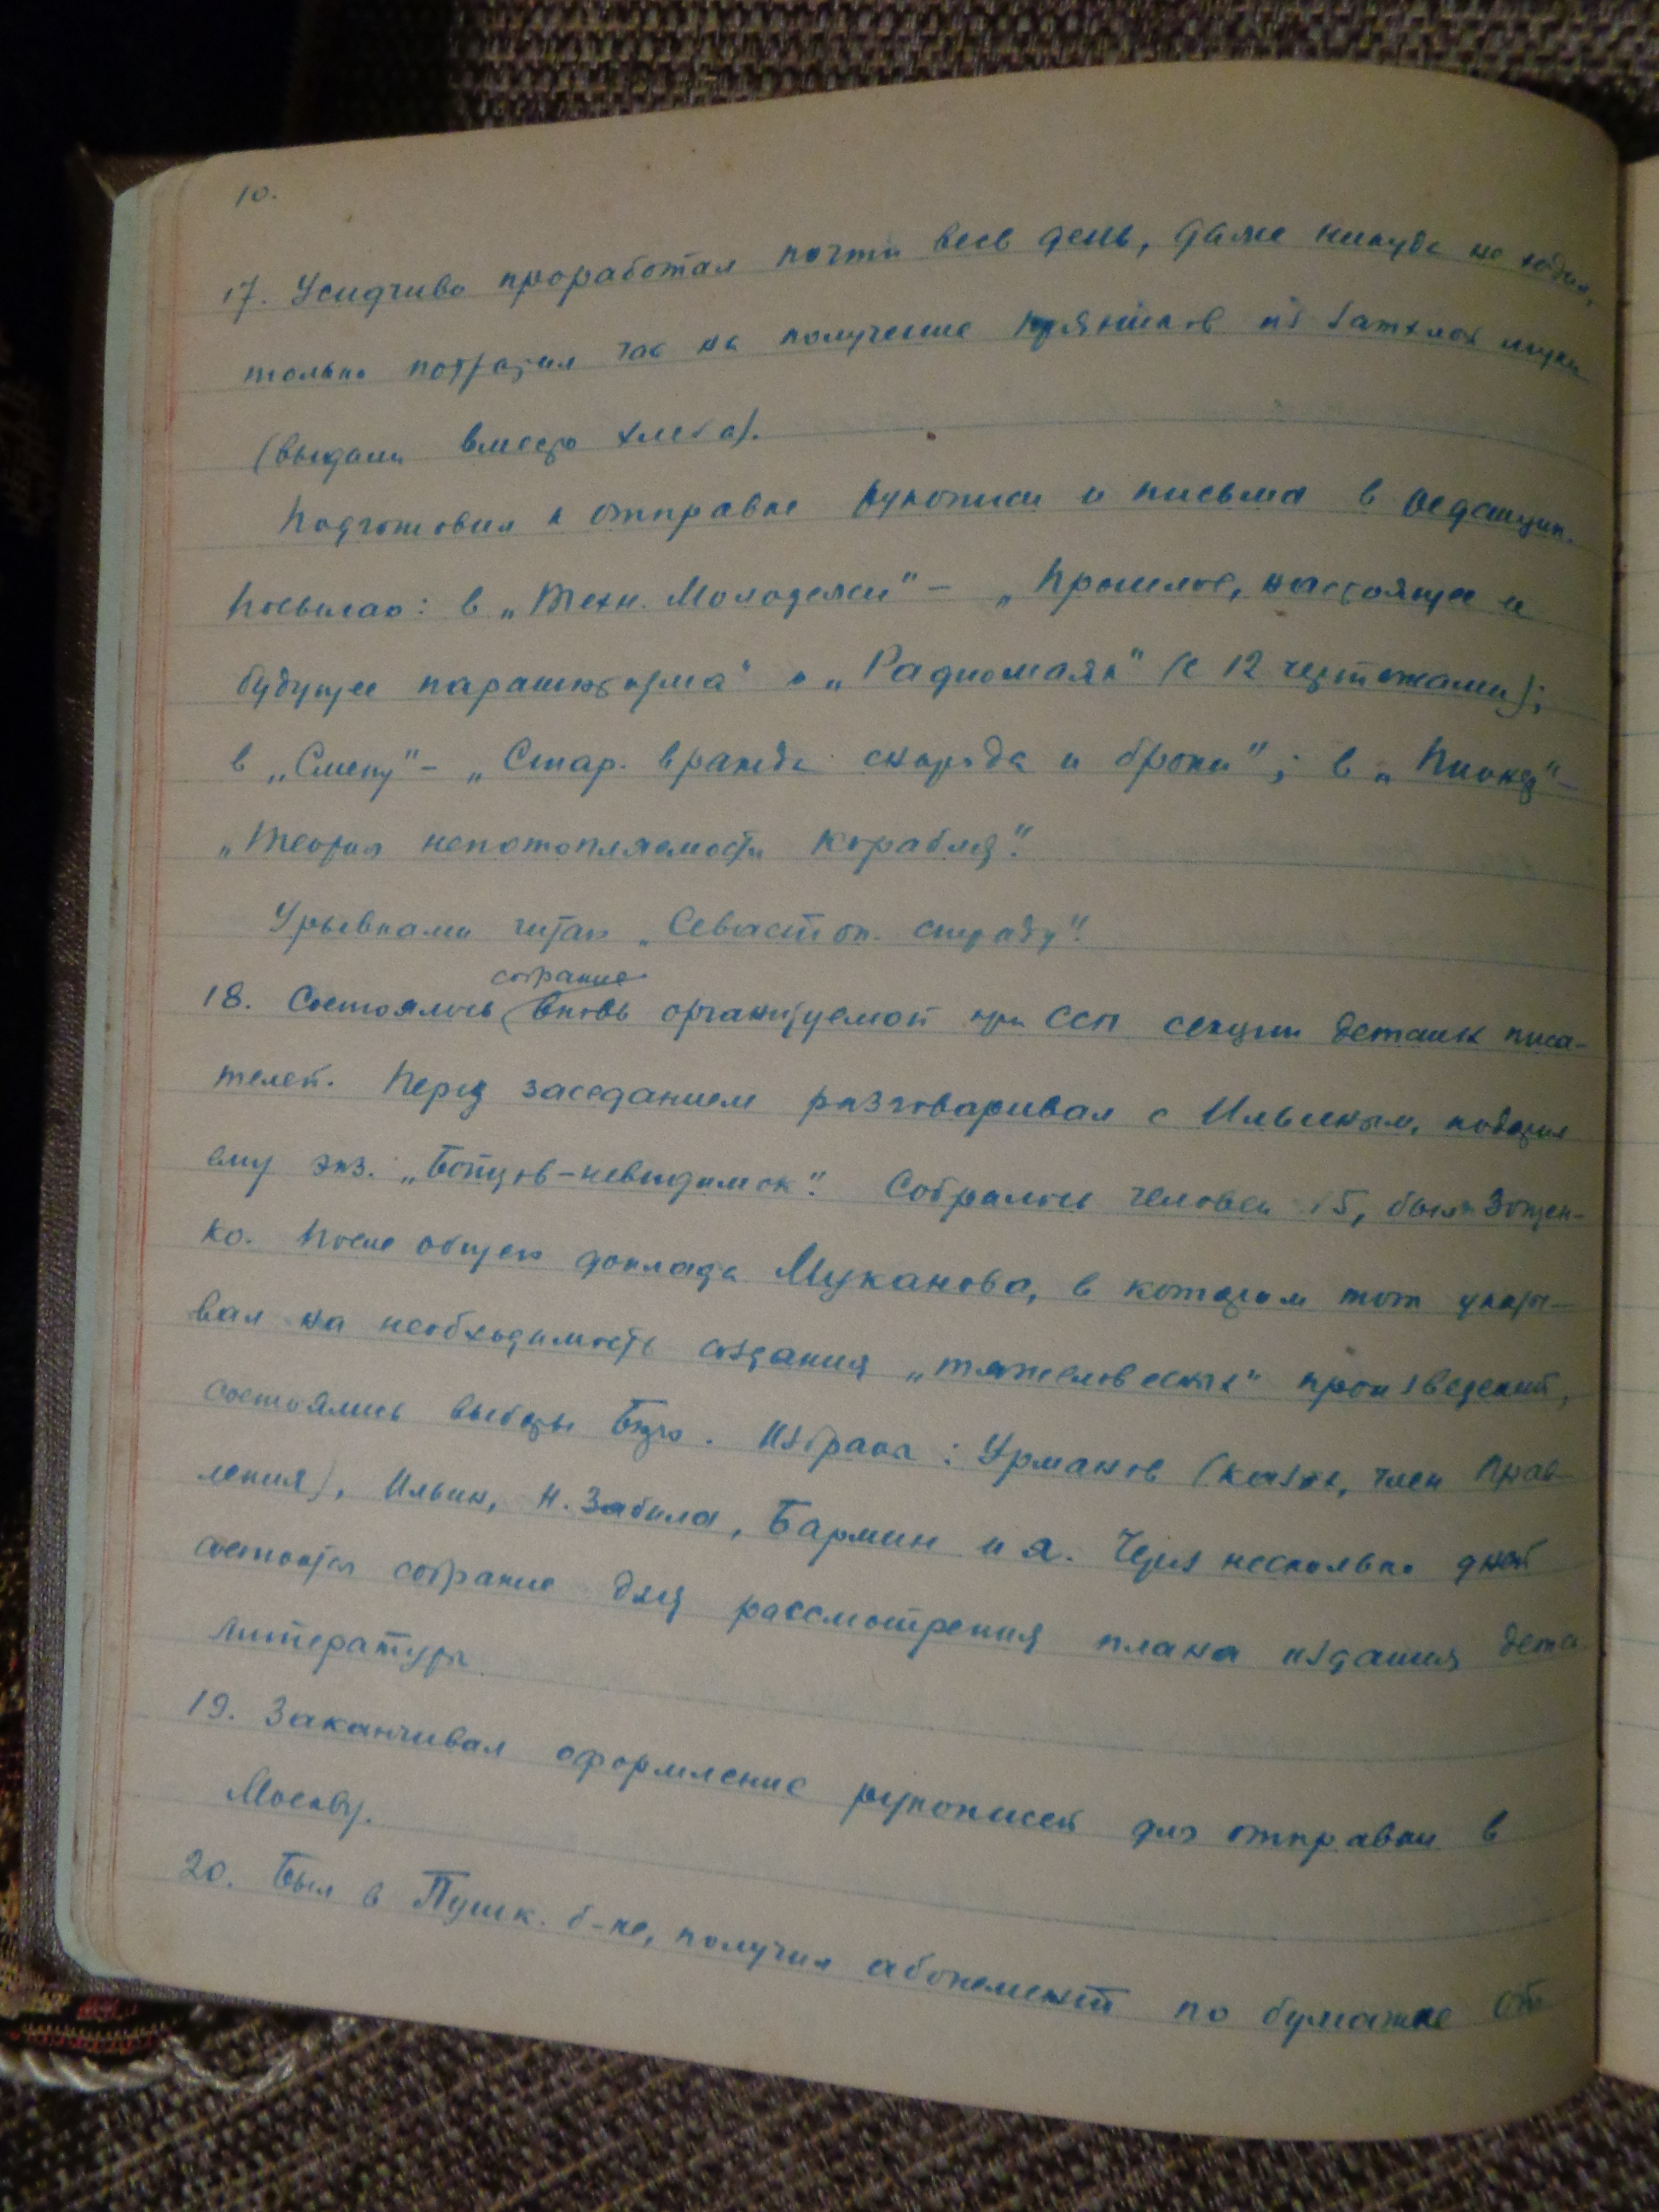 10.
17. Усидчиво проработал почти весь день, даже никуда не ходил,
только потратил час на получение пряников из затхлой муки
(выдали вместо хлеба).
Подготовил к отправке рукописи и письма в редакции.
Посылаю: в „Техн. Молодежи" – „Прошлое, настоящее и
будущее парашютизма" и „Радиомаяк" (с 12 чертежами);
в „Смену" – „Стар. вражда снаряда и брони"; в „Пионер" –
„Теория непотопляемости корабля".
Урывками читаю „Севастоп. страду".
собрание
18. Состоялось вновь организуемой при ССП секции детских писа-
телей. Перед заседанием разговаривал с Ильиным, подарил
ему экз. „Бойцов-невидимок". Собралось человек 15, был Зощен-
ко. После общего доклада Муканова, в котором тот указы-
вал на необходимость создания „тяжеловесных" произведений,
состоялись выборы Бюро. Избраны: Урманов (казах, член Прав-
ления), Ильин, Н. Забила, Бармин и я. Через несколько дней
состоится собрание для рассмотрения плана издания дет.
литературы
19. Заканчивал оформление рукописей для отправки в
Москву.
20. Был в Пушк. б-ке, получил абонемент по бумажке от